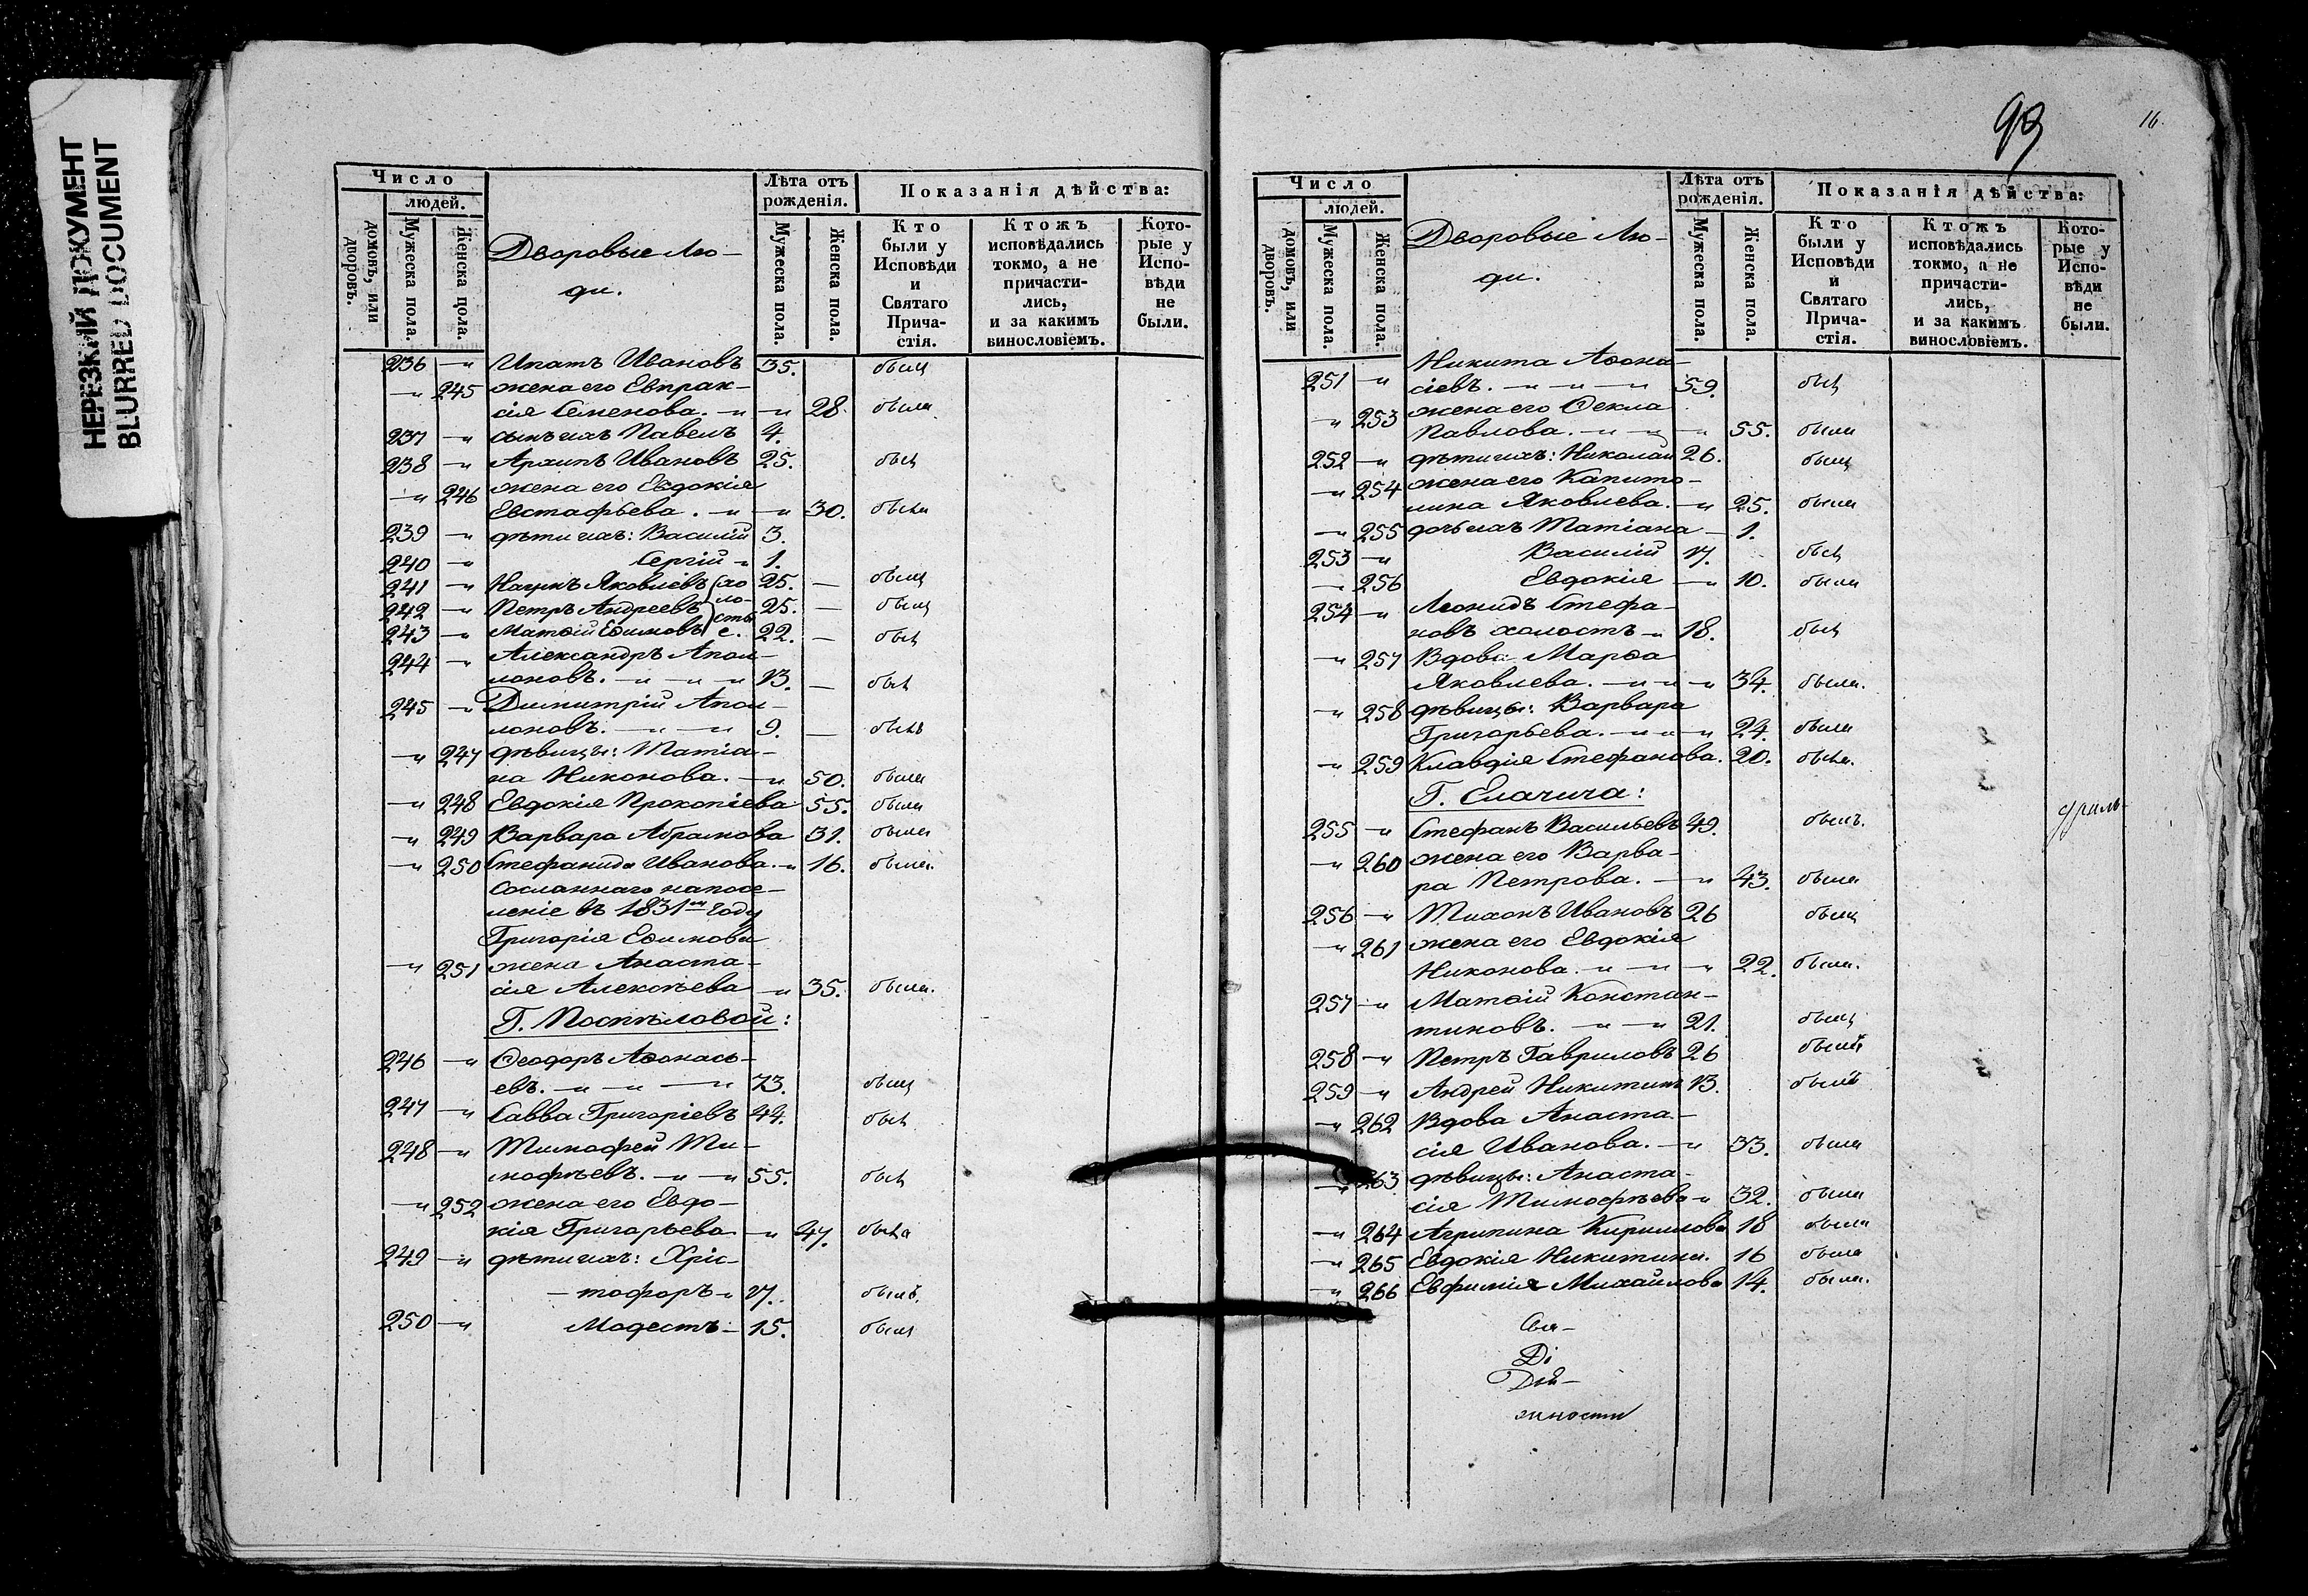 НЕРЕЗКИЙ ДОКУМЕНТ
BLURRED DOCUMENT
Число
людей.
домовъ, или дворовъ.
Мужеска пола.
Женска пола.
Дворовые Лю-
ди.
Лѣта отъ рожденія.
Мужеска пола.
Женска пола.
Показанія дѣйства:
Кто были у Исповѣди и Святаго Прича-стія.
Ктожъ исповѣдались токмо, а не причасти-лись, и за какимъ винословіемъ.
Кото-рые у Испо-вѣди не были.
236 —„ Ипатъ Ивановъ 35. былъ
—„ 245 жена его Евпрак-
сія Семенова. —„ —„ 28. была
237 —„ сынъ ихъ Павелъ 4.
238 —„ Архипъ Ивановъ 25. былъ
—„ 246 жена его Евдокія
Евстафьева. —„ —„ 30. была
239 —„ дѣти ихъ: Василій 3.
240 —„ Сергій —„ 1.
241 —„ Наумъ Яковлевъ (хо 25. — былъ
242 —„ Петръ Андреевъ ло- 25. — былъ
243 —„ Матѳій Еѳимовъ сты е. 22. — былъ
244 —„ Александръ Апол-
лоновъ. —„ —„ —„ 13. — былъ
245 —„ Димитрій Апол-
лоновъ. —„ —„ 9. — былъ
—„ 247 дѣвицы: Татіа-
на Никонова. —„ 50. была
—„ 248 Евдокія Прокопіева 55. была
—„ 249 Варвара Абрамова 31. была
—„ 250 Стефанида Иванова. —„ 16. была.
Сосланнаго на посе-
леніе въ 1831мъ году
Григорія Еѳимова
—„ 251 жена Анаста-
сія Алексѣева —„ 35. была.
Г. Поспѣловой:
246 —„ Ѳеодоръ Аѳонась-
евъ. —„ —„ —„ 73. былъ
247 —„ Савва Григоріевъ 44. былъ
248 —„ Тимофей Ти-
мофѣевъ. —„ —„ 55. былъ
—„ 252 жена его Евдо-
кія Григорьева —„ 47. была
249 —„ дѣти ихъ: Хріс-
— тофоръ —„ 17. былъ.
250 —„ Модестъ — 15. былъ
16.
Число
людей.
домовъ, или дворовъ.
Мужеска пола.
Женска пола.
Дворовые Лю-
ди.
Лѣта отъ рожденія.
Мужеска пола.
Женска пола.
Показанія дѣйства:
Кто были у Исповѣди и Святаго Прича-стія.
Ктожъ исповѣдались токмо, а не причасти-лись, и за какимъ винословіемъ.
Кото-рые у Испо-вѣди не были.
Никита Аѳона-
251 —„ сіевъ. —„ —„ —„ 59. былъ
—„ 253 жена его Ѳекла
Павлова. —„ —„ —„ 55. была
252 —„ дѣти ихъ: Николай 26. былъ
—„ 254 жена его Капито-
лина Яковлева. —„ 25. была
—„ 255 дочь ихъ Татіана — 1.
253 —„ Василій 17. былъ
—„ 256 Евдокія —„ 10. была
254 —„ Леонидъ Стефа-
новъ холостъ —„ 18. былъ
—„ 257 Вдова Марѳа
Яковлева. —„ —„ —„ 34. была.
—„ 258 дѣвицы: Варвара
Григорьева. —„ —„ —„ 24. была
—„ 259 Клавдія Стефанова. 20. была.
Г. Елагина:
255 —„ Стефанъ Васильевъ 49. былъ.
—„ 260 жена его Варва-
ра Петрова. —„ —„ 43. была
256 —„ Тихонъ Ивановъ 26 былъ
—„ 261 жена его Евдокія
Никонова. —„ —„ —„ 22. была.
257 —„ Матѳій Констан-
тиновъ. —„ —„ 21. былъ
258 —„ Петръ Гавриловъ 26 былъ
259 —„ Андрей Никитинъ 13. былъ
—„ 262 Вдова Анаста-
сія Иванова. —„ 33. была
—„ 263 дѣвицы: Анаста-
сія Тимофѣева —„ 32. была
—„ 264 Агрипина Кирилова 18 была
—„ 265 Евдокія Никитина. 16 была
—„ 266 Евфимія Михайлова 14. была.